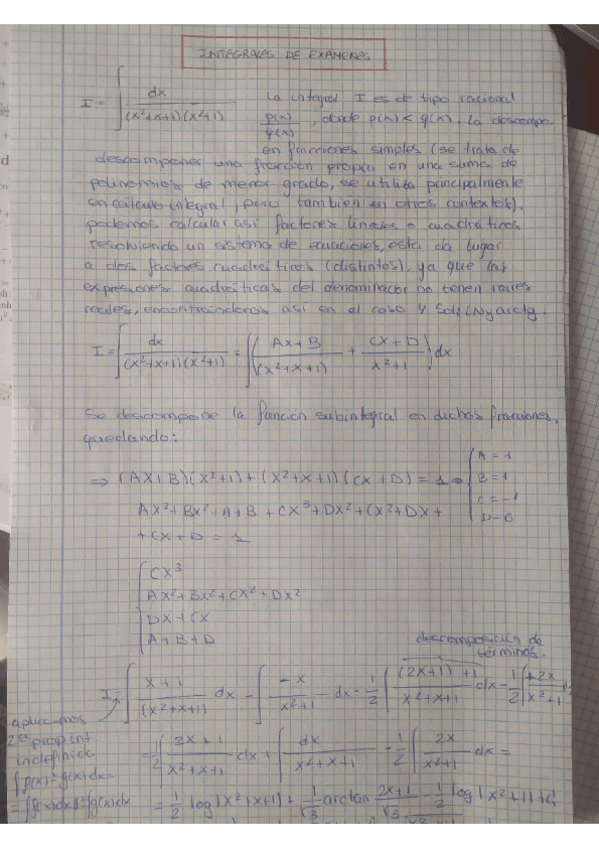 INTEGRALES DE EXAMENES
I = ∫ dx / (x²+x+1)(x²+1)
La integral I es de tipo racional
p(x)/q(x), donde p(x) < q(x). La descompo.
en fracciones simples (se trata de
descomponer una fracción propia en una suma de
polinomios de menor grado, se utiliza principalmente
en cálculo integral, pero también en otros contextos),
podemos calcular así factores lineales o cuadráticos
resolviendo un sistema de ecuaciones, esta da lugar
a dos factores cuadráticos (distintos), ya que las
expresiones cuadráticas del denominador no tienen raíces
reales, encontrándonos así en el caso 4 Sol: LN y arctg.
I = ∫ dx / (x²+x+1)(x²+1) = ∫ ( Ax+B / (x²+x+1) + Cx+D / x²+1 ) dx
Se descompone la función subintegral en dichas fracciones,
quedando:
⇒ (AX+B)(X²+1)+(X²+X+1)(CX+D) = 1 ⇒ { A = 1
B = 1
C = -1
D = 0
AX²+BX²+A+B+CX³+DX²+CX²+DX+
+CX+D = 1
{ CX³
AX²+BX²+CX²+DX²
DX+CX
A+B+D
descomposición de
términos.
I = ∫ x+1 / (x²+x+1) dx - ∫ -x / x²+1 dx = 1/2 ∫ (2x+1)+1 / x²+x+1 dx - 1/2 ∫ +2x / x²+1 dx
aplicamos
2ª prop int
indefinida
= 1/2 ∫ 2x+1 / x²+x+1 dx + ∫ dx / x²+x+1 - 1/2 ∫ 2x / x²+1 dx =
= 1/2 log|x²+x+1| + 1/√3 arctan 2x+1/√3 - 1/2 log|x²+1|+C